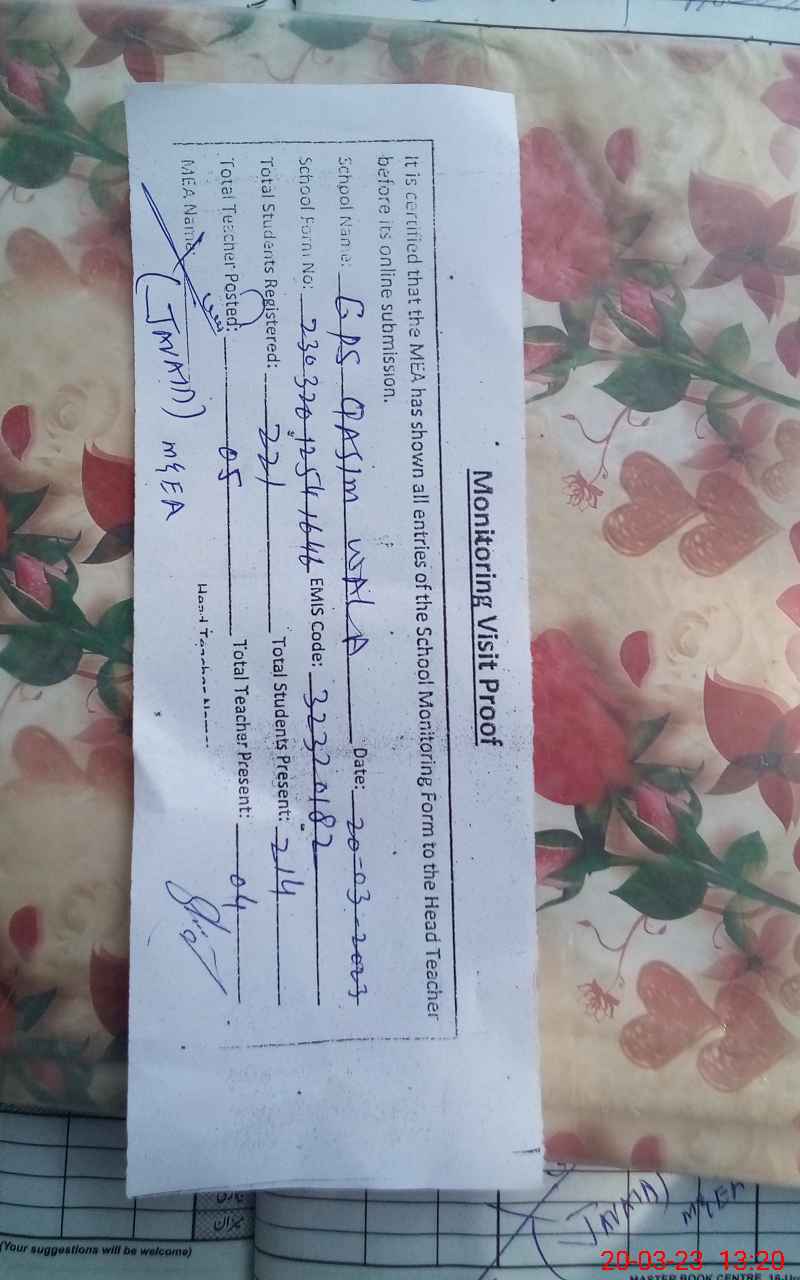 Monitoring Visit Proof
It is certified that the MEA has shown all entries of the School Monitoring Form to the Head Teacher
before its online submission.
School Name: GPS QASIM WALA Date: 20-03-2023
School Form No: 2303201254 1646 EMIS Code: 32320182
Total Students Registered: 221 Total Students Present: 214
Total Teacher Posted: 05 Total Teacher Present: 04
MEA Name
(JAVAID) M&EA
Head Teacher Name:
(JAVAID)
M&EA
(Your suggestions will be welcome)
MASTER BOOK CENTRE
20-03-23 13:20